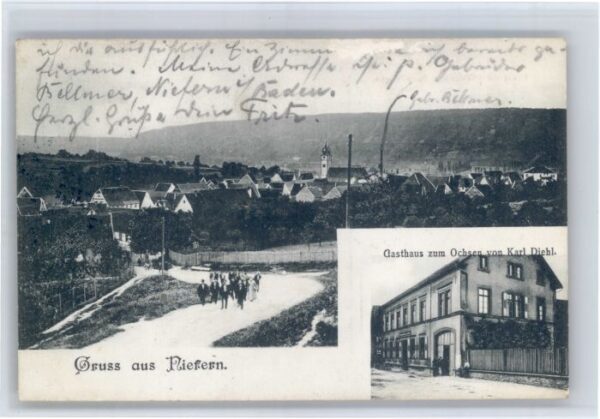 ich dir ausführlich. Ein Zimm habe ich bereits ge-
funden. Meine Adresse ist p. Gebrüder
Bellmer, Niefern i/ Baden.
Herzl. Grüße Dein Fritz.
Gebr. Bellmer.
Gasthaus zum Ochsen von Karl Diehl.
Gruss aus Niefern.